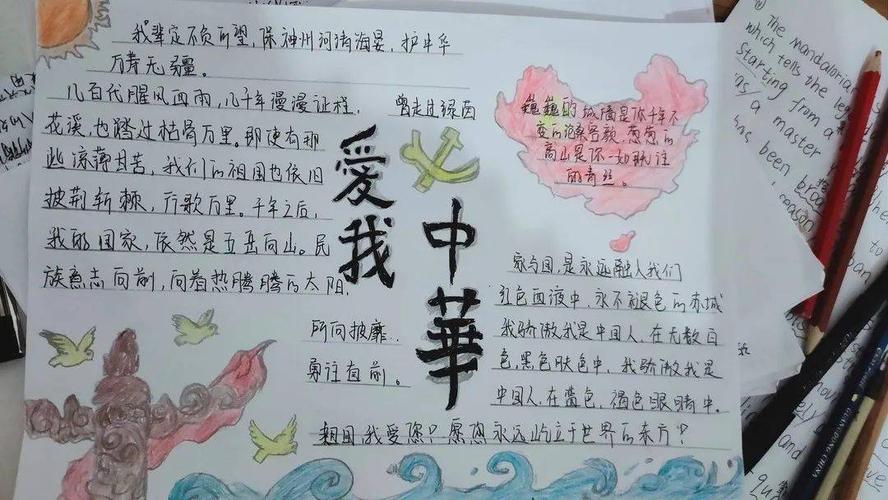 我辈定不负所望,保神州河清海晏,护中华
万寿无疆。
几百代腥风血雨,几千年漫漫征程.
曾走过绿茵
花溪,也踏过枯骨万里。即使有那
些凉薄甘苦,我们的祖国也依旧
披荆斩棘,行歌万里。千年之后,
我的国家,依然是五岳向山。民
族意志向前,向着热腾腾的太阳,
所向披靡.
勇往直前。
愛我
中華
巍巍的城墙是你千年不
变的沧桑容貌,葱葱的
高山是你一如既往
的青丝。
家与国,是永远融入我们
红色血液中,永不褪色的赤城
我骄傲我是中国人,在无数白
色,黑色肤色中,我骄傲我是
中国人,在蓝色,褐色眼睛中.
祖国,我爱您!愿您永远屹立于世界的东方!
The mandalorian
which tells the leg
starting from
as a master
has been
reason